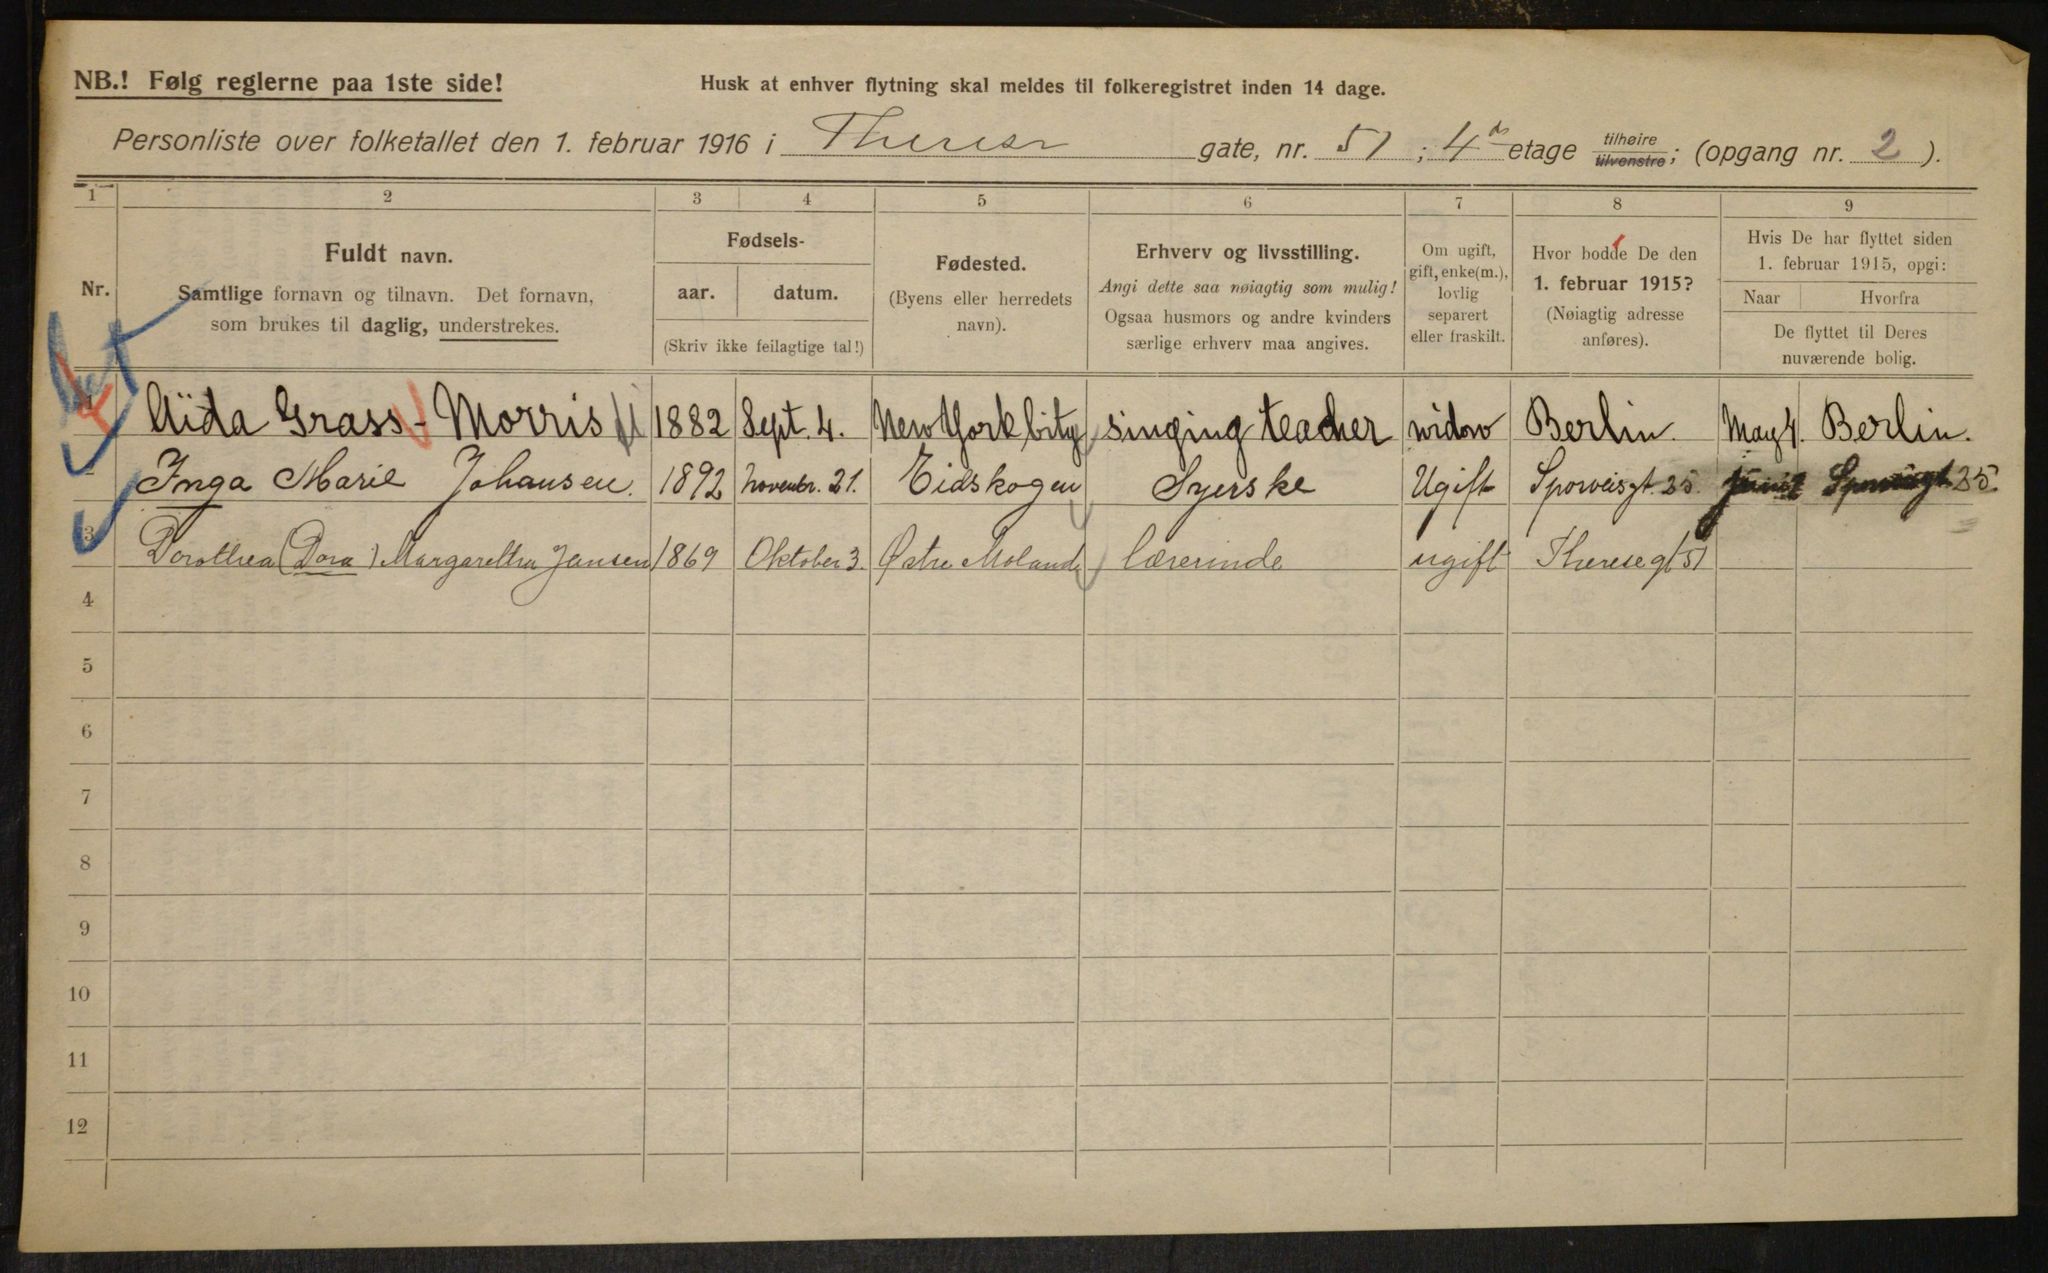 NB.! Følg reglerne paa 1ste side!
Husk at enhver flytning skal meldes til folkeregistret inden 14 dage.
Personliste over folketallet den 1. februar 1916 i Therese gate, nr. 51 ; 4de etage tilhøire tilvenstre; (opgang nr. 2 ).
1 2 3 4 5 6 7 8 9
Nr.
Fuldt navn.
Samtlige fornavn og tilnavn. Det fornavn,
som brukes til daglig, understrekes.
Fødsels-
aar. datum.
(Skriv ikke feilagtige tal!)
Fødested.
(Byens eller herredets
navn).
Erhverv og livsstilling.
Angi dette saa nøiagtig som mulig!
Ogsaa husmors og andre kvinders
særlige erhverv maa angives.
Om ugift,
gift, enke(m.),
lovlig
separert
eller fraskilt.
Hvor bodde De den
1. februar 1915?
(Nøiagtig adresse
anføres).
Hvis De har flyttet siden
1. februar 1915, opgi:
Naar Hvorfra
De flyttet til Deres
nuværende bolig.
1 Aïda Grass-Morris 1882 Sept. 4. New York City singing teacher widow Berlin. May 4. Berlin.
2 Inga Marie Johansen. 1892 Novembr. 21. Eidskogen Syerske Ugift Sporveisgt. 25. Sporveisgt. 25.
3 Dorothea (Dora) Margaretha Jansen 1869 Oktober 3. Østre Moland lærerinde ugift Theresegt 51
4
5
6
7
8
9
10
11
12